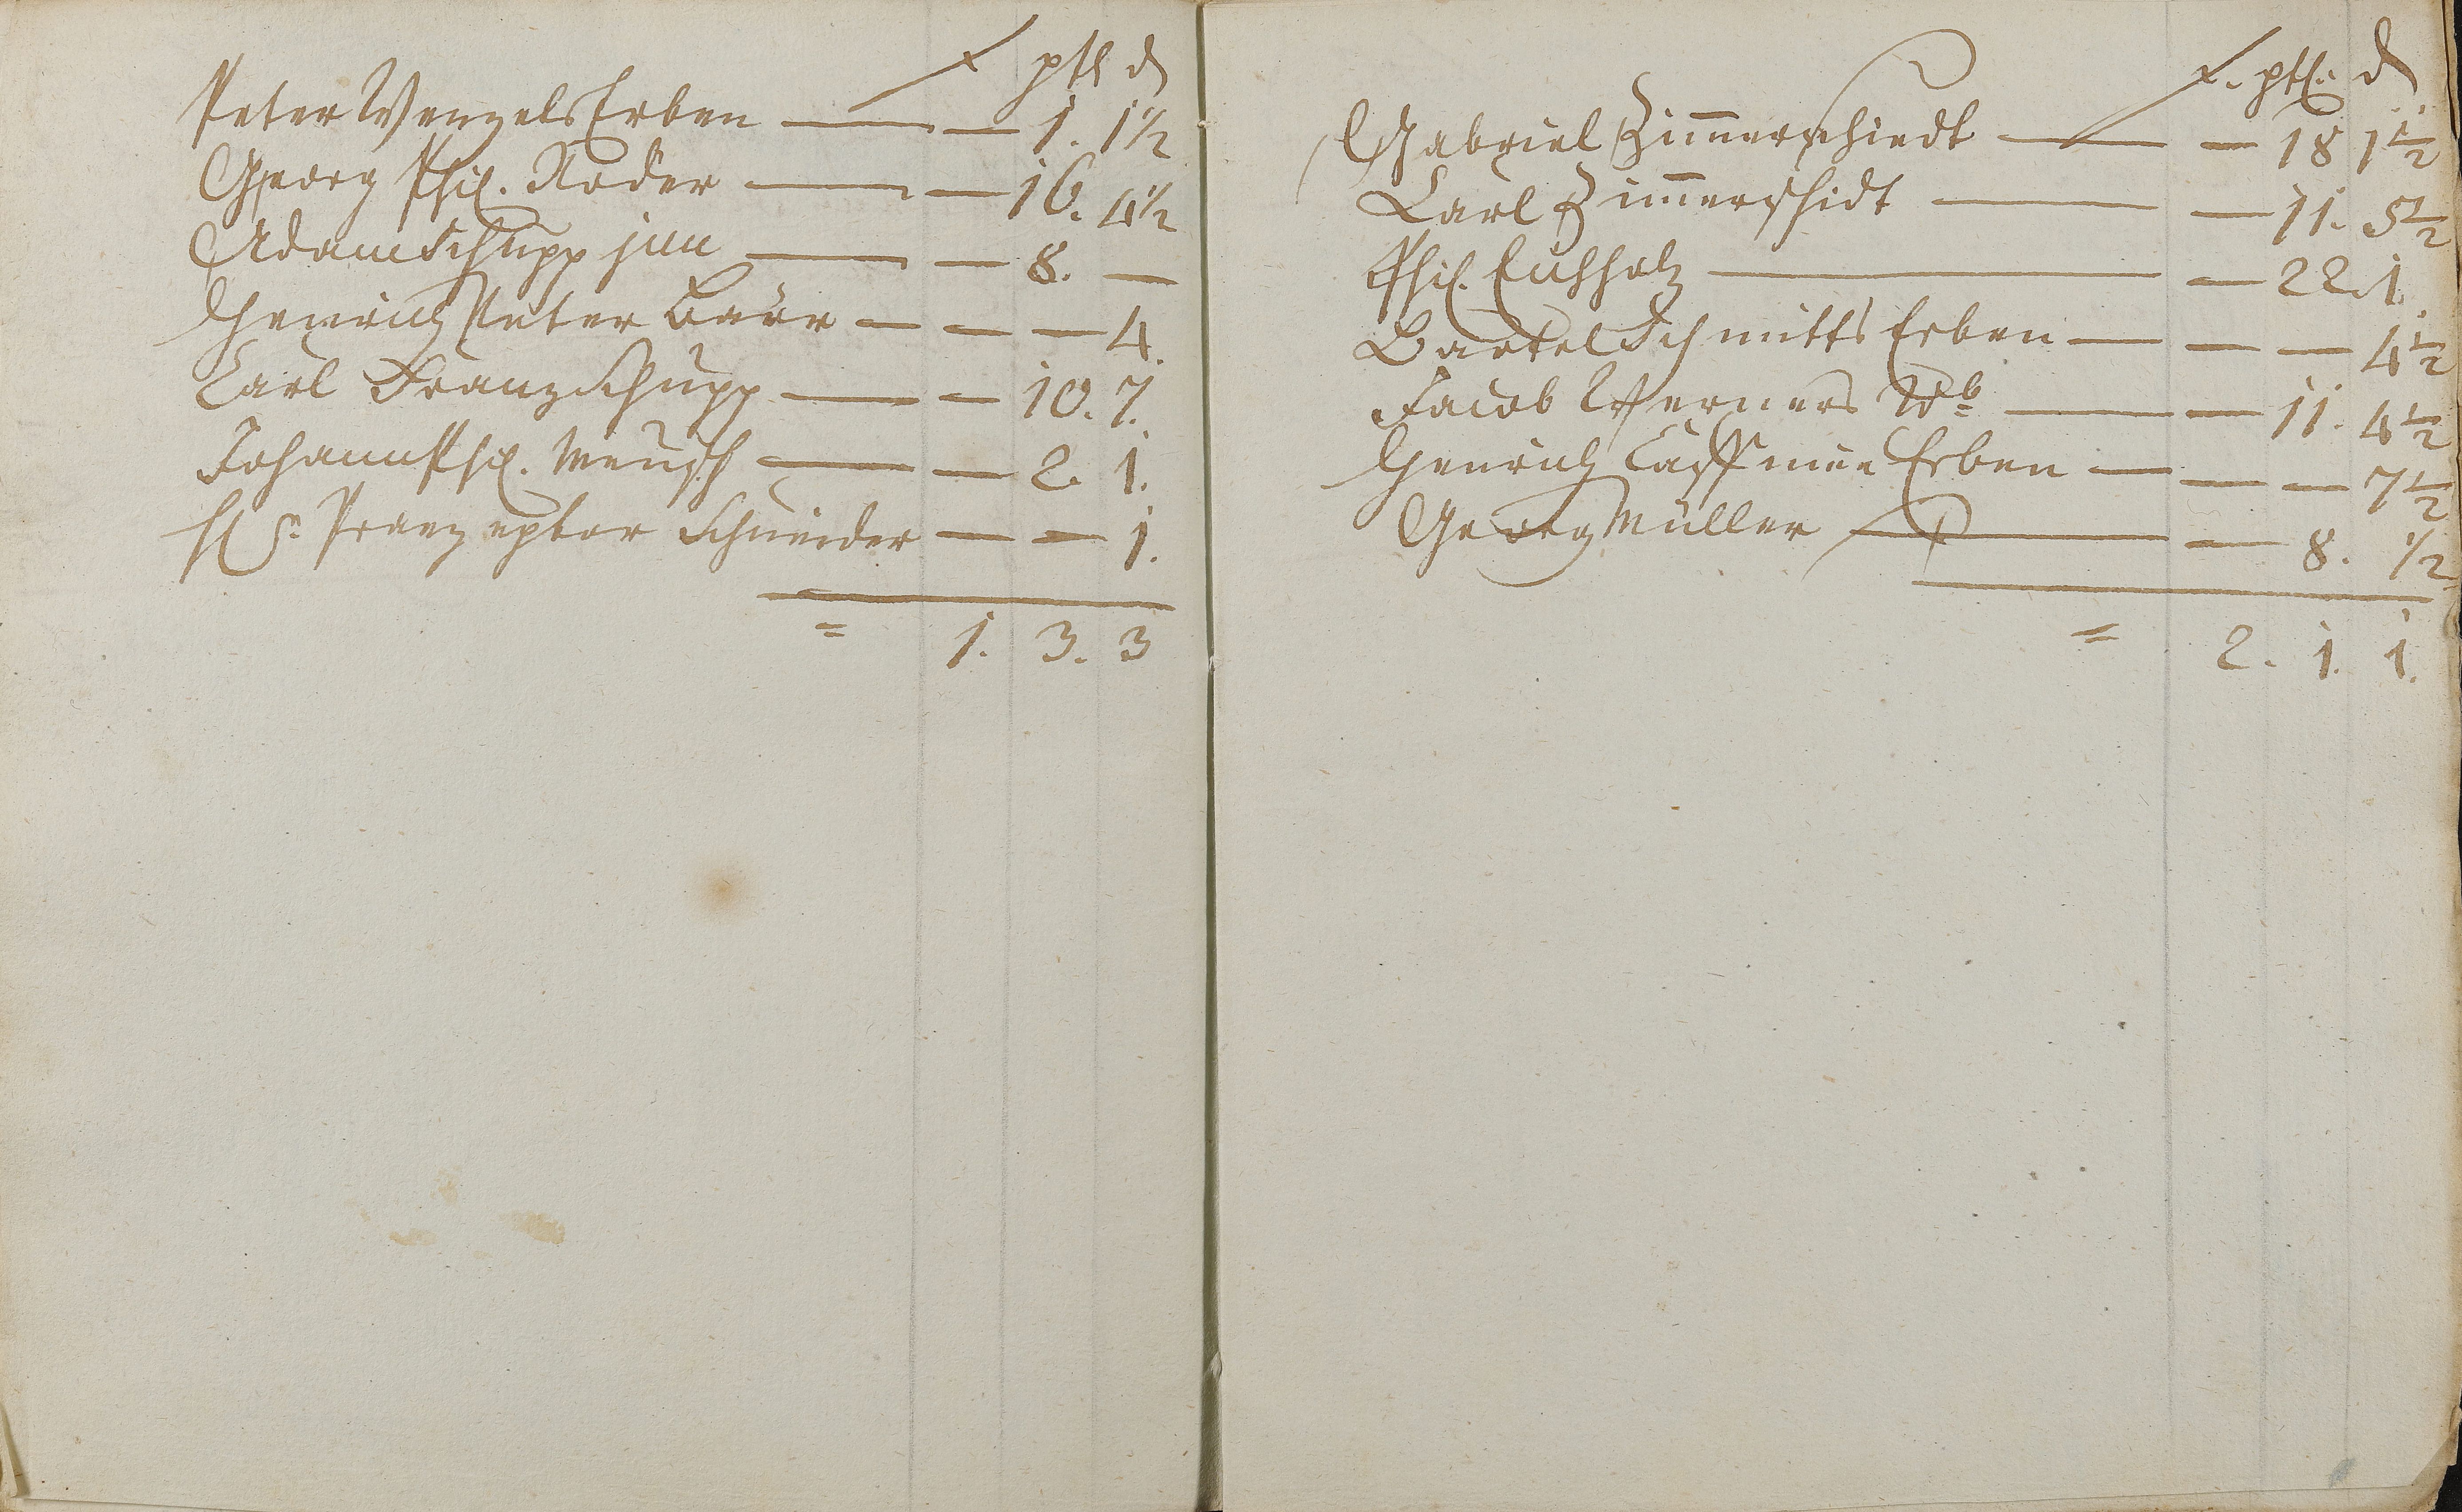 f ptl d
Peter Wenzels Erben — — 1. 1½
Georg Phil. Röder — — 16. 4½
Adam Schupp jun — — 8. —
Henrich Peter Baur — — — 4.
Carl Franz Schupp — — 10. 7.
Johann Phil. Mensch — — 2. 1.
H. Praezeptor Schneider — — 1.
= 1. 3. 3
f. ptl. d
Gabriel Zim̄erschiedt — — 18 1½
Carl Zim̄erschidt — — 11. 5½
Phil. Eichholz — — 22. 1.
Bartel Schmitts Erben — — — 4½
Jacob Werners Wb — — 11. 4½
Henrich Erben — — — 7½
Georg Müller — — 8. ½
= 2. 1. 1.